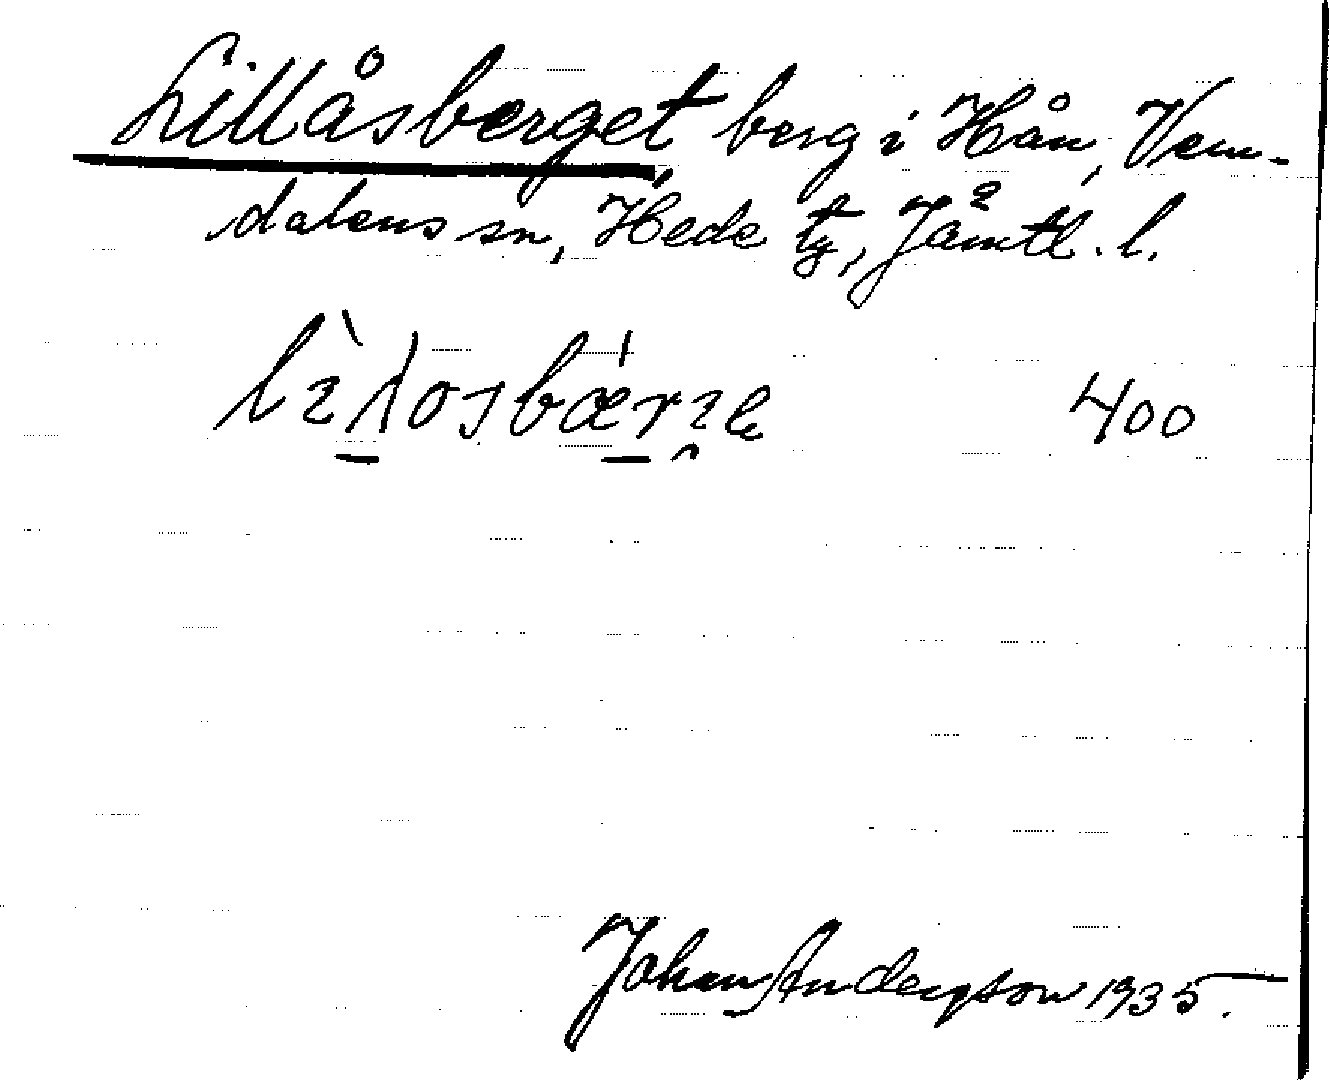 Lillåsberget, berg i Hån, Vem-
dalens sn, Hede tg, Jämtl. l.
400
Johan Andersson 1935.